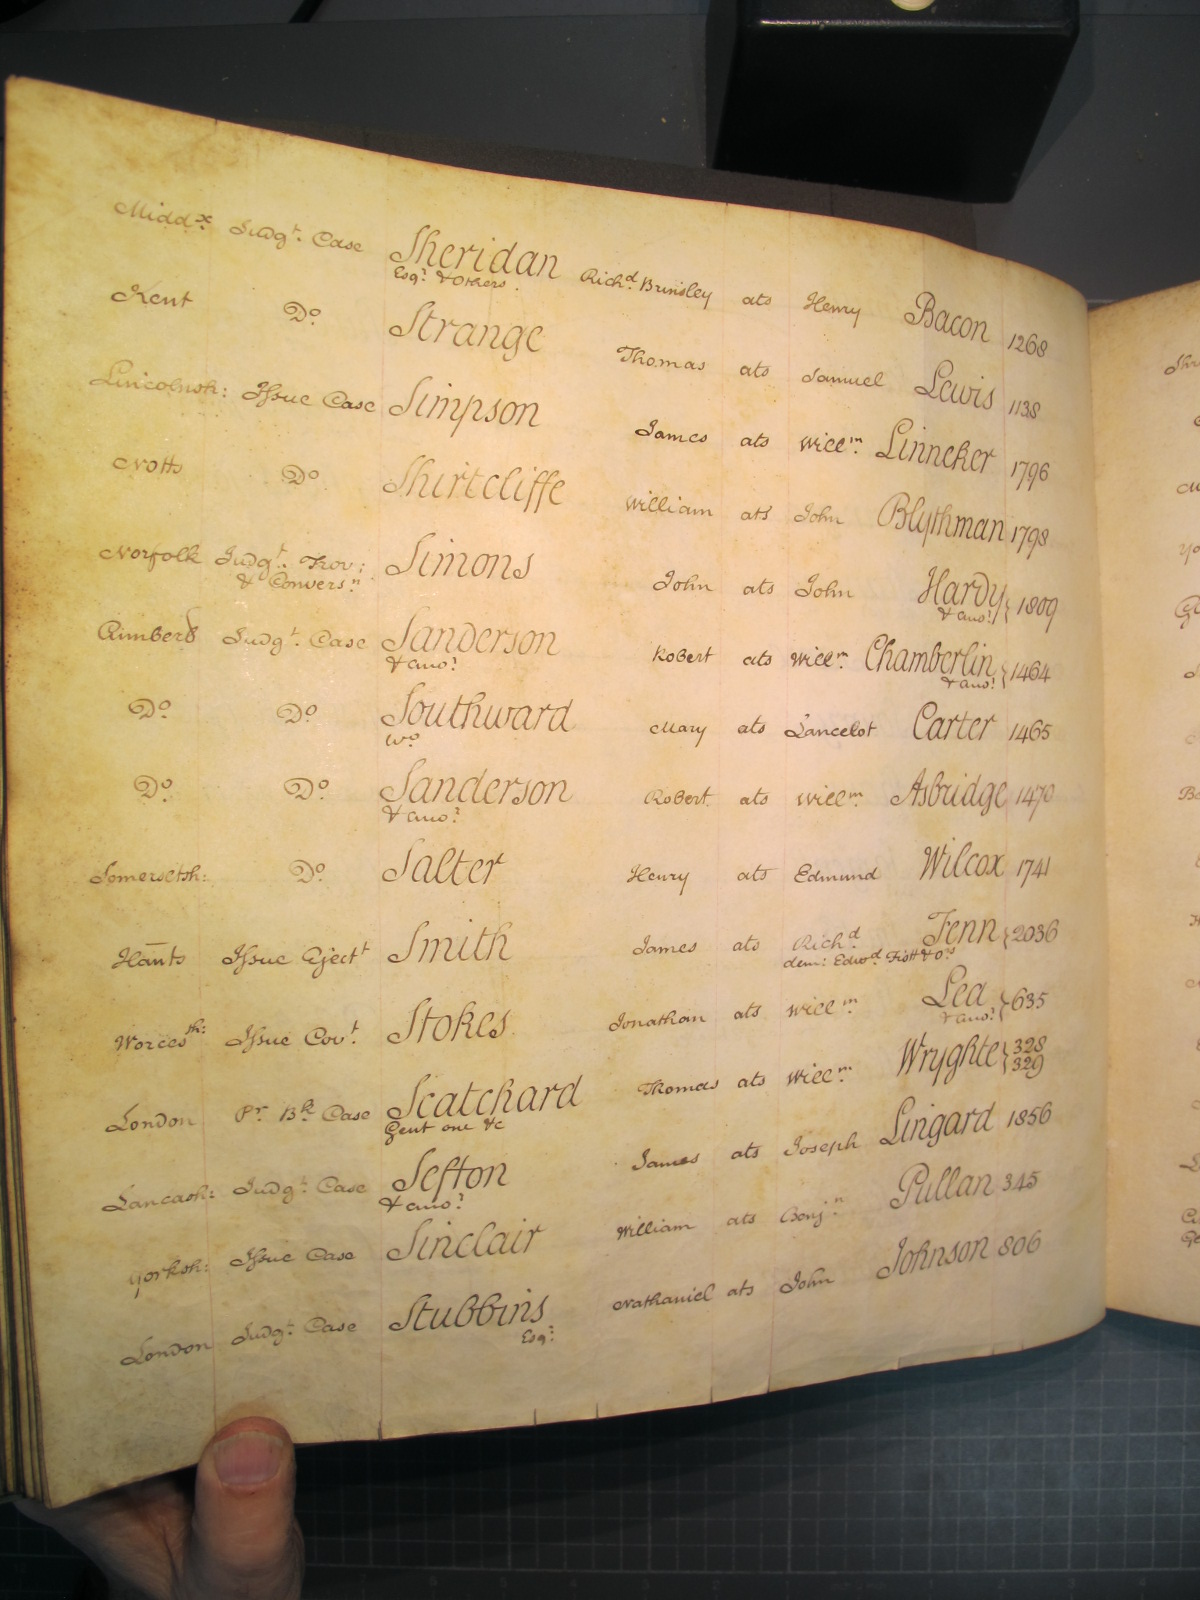 Midd.x Judg.t Case Sheridan Rich.d Brinsley ats Henry Bacon 1268
Esq.r & Others.
Kent D.o Strange Thomas ats Samuel Lewis 1138
Lincolnsh: Issue Case Simpson James ats Will.m Linneker 1796
Notts D.o Shirtcliffe William ats John Blythman 1798
Norfolk Judg.t Trov: Simons John ats John Hardy 1809
& Convers.n & ano.r
Cumberd Judg.t Case Sanderson Robert ats Will.m Chamberlin 1464
& ano.r & ano.r
D.o D.o Southward Mary ats Lancelot Carter 1465
W.o
D.o D.o Sanderson Robert ats Will.m Asbridge 1470
& ano.r
Somersetsh: D.o Salter Henry ats Edmund Wilcox 1741
Hants Issue Eject.t Smith James ats Rich.d Fenn 2036
dem: Edw.d & o.rs
Worces.sh: Issue Cov.t Stokes Jonathan ats Will.m Lea 635
& ano.r
London P.r B.k Case Scatchard Thomas ats Will.m Wryghte 328
Gent one &c 329
Lancash: Judg.t Case Sefton James ats Joseph Lingard 1856
& ano.r
Yorksh: Issue Case Sinclair William ats Benj.n Pullan 345
London Judg.t Case Stubbins Nathaniel ats John Johnson 806
Esq.r